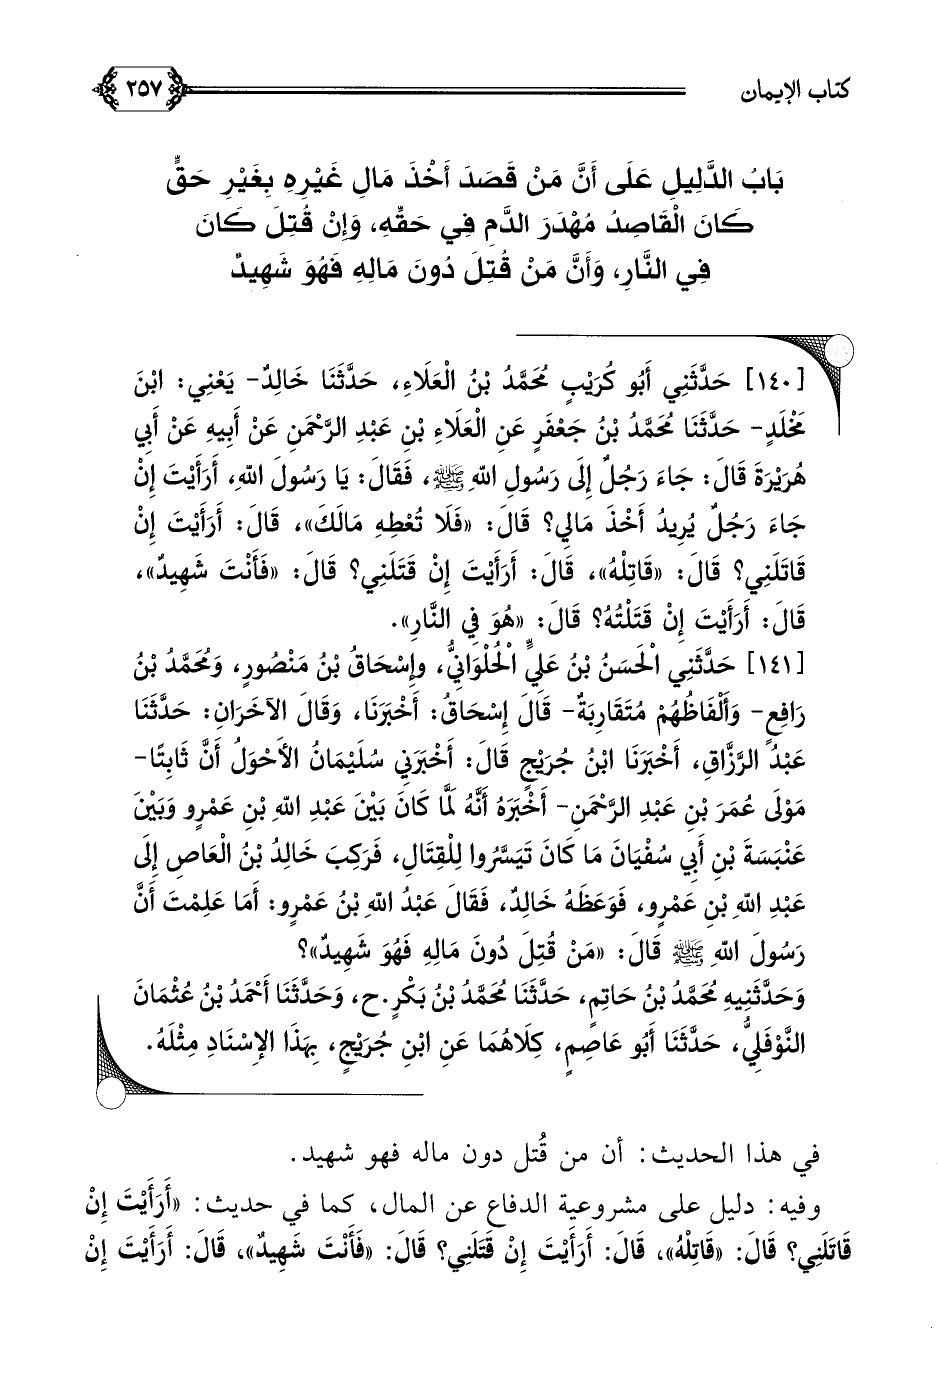 كتاب الإيمان
٢٥٧
بَابُ الدَّلِيلِ عَلَى أَنَّ مَنْ قَصَدَ أَخْذَ مَالِ غَيْرِهِ بِغَيْرِ حَقٍّ
كَانَ الْقَاصِدُ مُهْدَرَ الدَّمِ فِي حَقِّهِ، وَإِنْ قُتِلَ كَانَ
فِي النَّارِ، وَأَنَّ مَنْ قُتِلَ دُونَ مَالِهِ فَهُوَ شَهِيدٌ
[١٤٠] حَدَّثَنِي أَبُو كُرَيْبٍ مُحَمَّدُ بْنُ الْعَلَاءِ، حَدَّثَنَا خَالِدٌ- يَعْنِي: ابْنَ
مَخْلَدٍ- حَدَّثَنَا مُحَمَّدُ بْنُ جَعْفَرٍ عَنِ الْعَلَاءِ بْنِ عَبْدِ الرَّحْمَنِ عَنْ أَبِيهِ عَنْ أَبِي
هُرَيْرَةَ قَالَ: جَاءَ رَجُلٌ إِلَى رَسُولِ اللهِ ﷺ، فَقَالَ: يَا رَسُولَ اللهِ، أَرَأَيْتَ إِنْ
جَاءَ رَجُلٌ يُرِيدُ أَخْذَ مَالِي؟ قَالَ: «فَلَا تُعْطِهِ مَالَكَ»، قَالَ: أَرَأَيْتَ إِنْ
قَاتَلَنِي؟ قَالَ: «قَاتِلْهُ»، قَالَ: أَرَأَيْتَ إِنْ قَتَلَنِي؟ قَالَ: «فَأَنْتَ شَهِيدٌ»،
قَالَ: أَرَأَيْتَ إِنْ قَتَلْتُهُ؟ قَالَ: «هُوَ فِي النَّارِ».
[١٤١] حَدَّثَنِي الْحَسَنُ بْنُ عَلِيٍّ الْحُلْوَانِيُّ، وإِسْحَاقُ بْنُ مَنْصُورٍ، وَمُحَمَّدُ بْنُ
رَافِعٍ- وَأَلْفَاظُهُمْ مُتَقَارِبَةٌ- قَالَ إِسْحَاقُ: أَخْبَرَنَا، وَقَالَ الآخَرَانِ: حَدَّثَنَا
عَبْدُ الرَّزَّاقِ، أَخْبَرَنَا ابْنُ جُرَيْجٍ قَالَ: أَخْبَرَنِي سُلَيْمَانُ الأَحْوَلُ أَنَّ ثَابِتًا-
مَوْلَى عُمَرَ بْنِ عَبْدِ الرَّحْمَنِ- أَخْبَرَهُ أَنَّهُ لَمَّا كَانَ بَيْنَ عَبْدِ اللهِ بْنِ عَمْرٍو وَبَيْنَ
عَنْبَسَةَ بْنِ أَبِي سُفْيَانَ مَا كَانَ تَيَسَّرُوا لِلْقِتَالِ، فَرَكِبَ خَالِدُ بْنُ الْعَاصِ إِلَى
عَبْدِ اللهِ بْنِ عَمْرٍو، فَوَعَظَهُ خَالِدٌ، فَقَالَ عَبْدُ اللهِ بْنُ عَمْرٍو: أَمَا عَلِمْتَ أَنَّ
رَسُولَ اللهِ ﷺ قَالَ: «مَنْ قُتِلَ دُونَ مَالِهِ فَهُوَ شَهِيدٌ»؟
وَحَدَّثَنِيهِ مُحَمَّدُ بْنُ حَاتِمٍ، حَدَّثَنَا مُحَمَّدُ بْنُ بَكْرٍ.ح، وَحَدَّثَنَا أَحْمَدُ بْنُ عُثْمَانَ
النَّوْفَلِيُّ، حَدَّثَنَا أَبُو عَاصِمٍ، كِلَاهُمَا عَنِ ابْنِ جُرَيْجٍ، بِهَذَا الإِسْنَادِ مِثْلَهُ.
في هذا الحديث: أن من قُتل دون ماله فهو شهيد.
وفيه: دليل على مشروعية الدفاع عن المال، كما في حديث: «أَرَأَيْتَ إِنْ
قَاتَلَنِي؟ قَالَ: «قَاتِلْهُ»، قَالَ: أَرَأَيْتَ إِنْ قَتَلَنِي؟ قَالَ: «فَأَنْتَ شَهِيدٌ»، قَالَ: أَرَأَيْتَ إِنْ